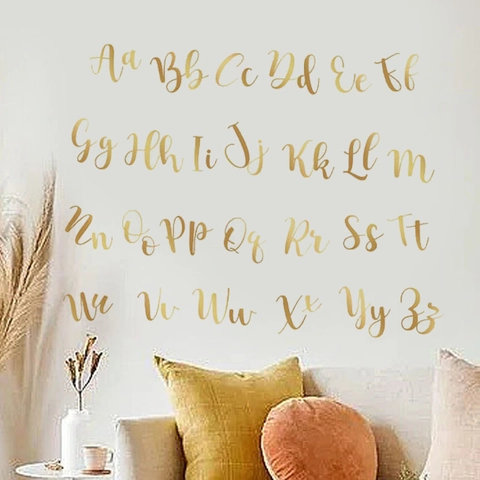 Aa Bb Cc Dd Ee Ff
Gg Hh Ii Jj Kk Ll M
Nn Oo Pp Qq Rr Ss Tt
Uu Vv Ww Xx Yy Zz